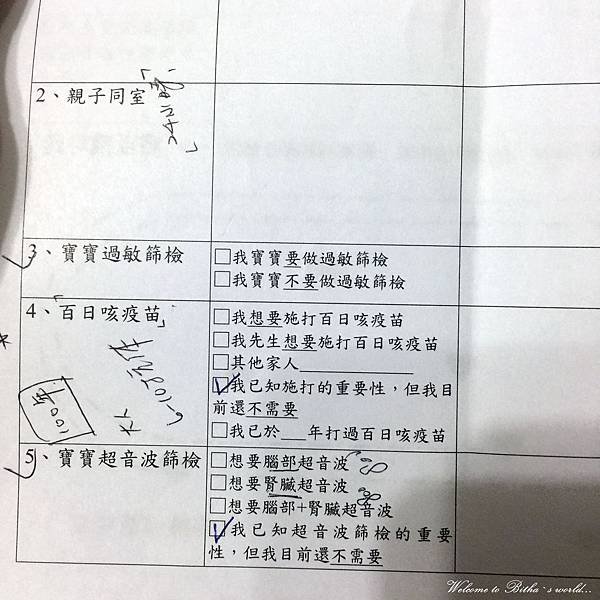 2、親子同室
3、寶寶過敏篩檢
□我寶寶要做過敏篩檢
□我寶寶不要做過敏篩檢
4、「百日咳疫苗」
□我想要施打百日咳疫苗
□我先生想要施打百日咳疫苗
□其他家人______________
☑我已知施打的重要性，但我目
前還不需要
□我已於___年打過百日咳疫苗
5、寶寶超音波篩檢
□想要腦部超音波
□想要腎臟超音波
□想要腦部+腎臟超音波
☑我已知超音波篩檢的重要
性，但我目前還不需要
Welcome to Bitha`s world...